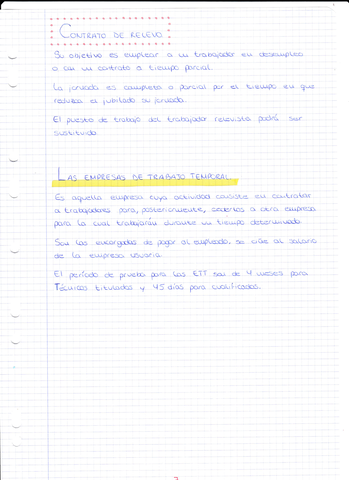 CONTRATO DE RELEVO
Su objetivo es emplear a un trabajador en desempleo
o con un contrato a tiempo parcial.
La jornada es completa o parcial por el tiempo en que
reduzca el jubilado su jornada.
El puesto de trabajo del trabajador relevista podrá ser
sustituido.
LAS EMPRESAS DE TRABAJO TEMPORAL
Es aquella empresa cuya actividad consiste en contratar
a trabajadores para, posteriormente, cederlos a otra empresa
para la cual trabajarán durante un tiempo determinado.
Son las encargadas de pagar al empleado, se ciñe al salario
de la empresa usuaria.
El período de prueba para las ETT son de 4 meses para
Técnicos titulados y 45 días para cualificados.